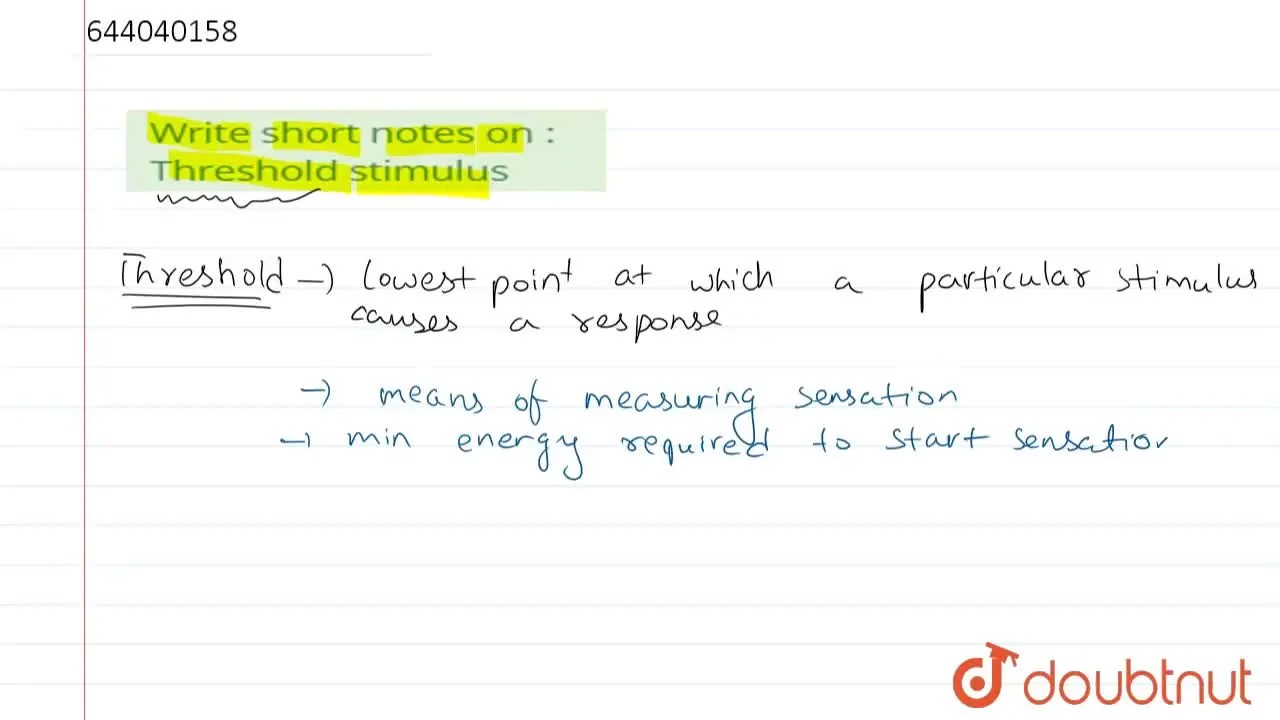 644040158
Write short notes on :
Threshold stimulus
Threshold → lowest point at which a particular stimulus
causes a response
→ means of measuring sensation
→ min energy required to start sensation
doubtnut